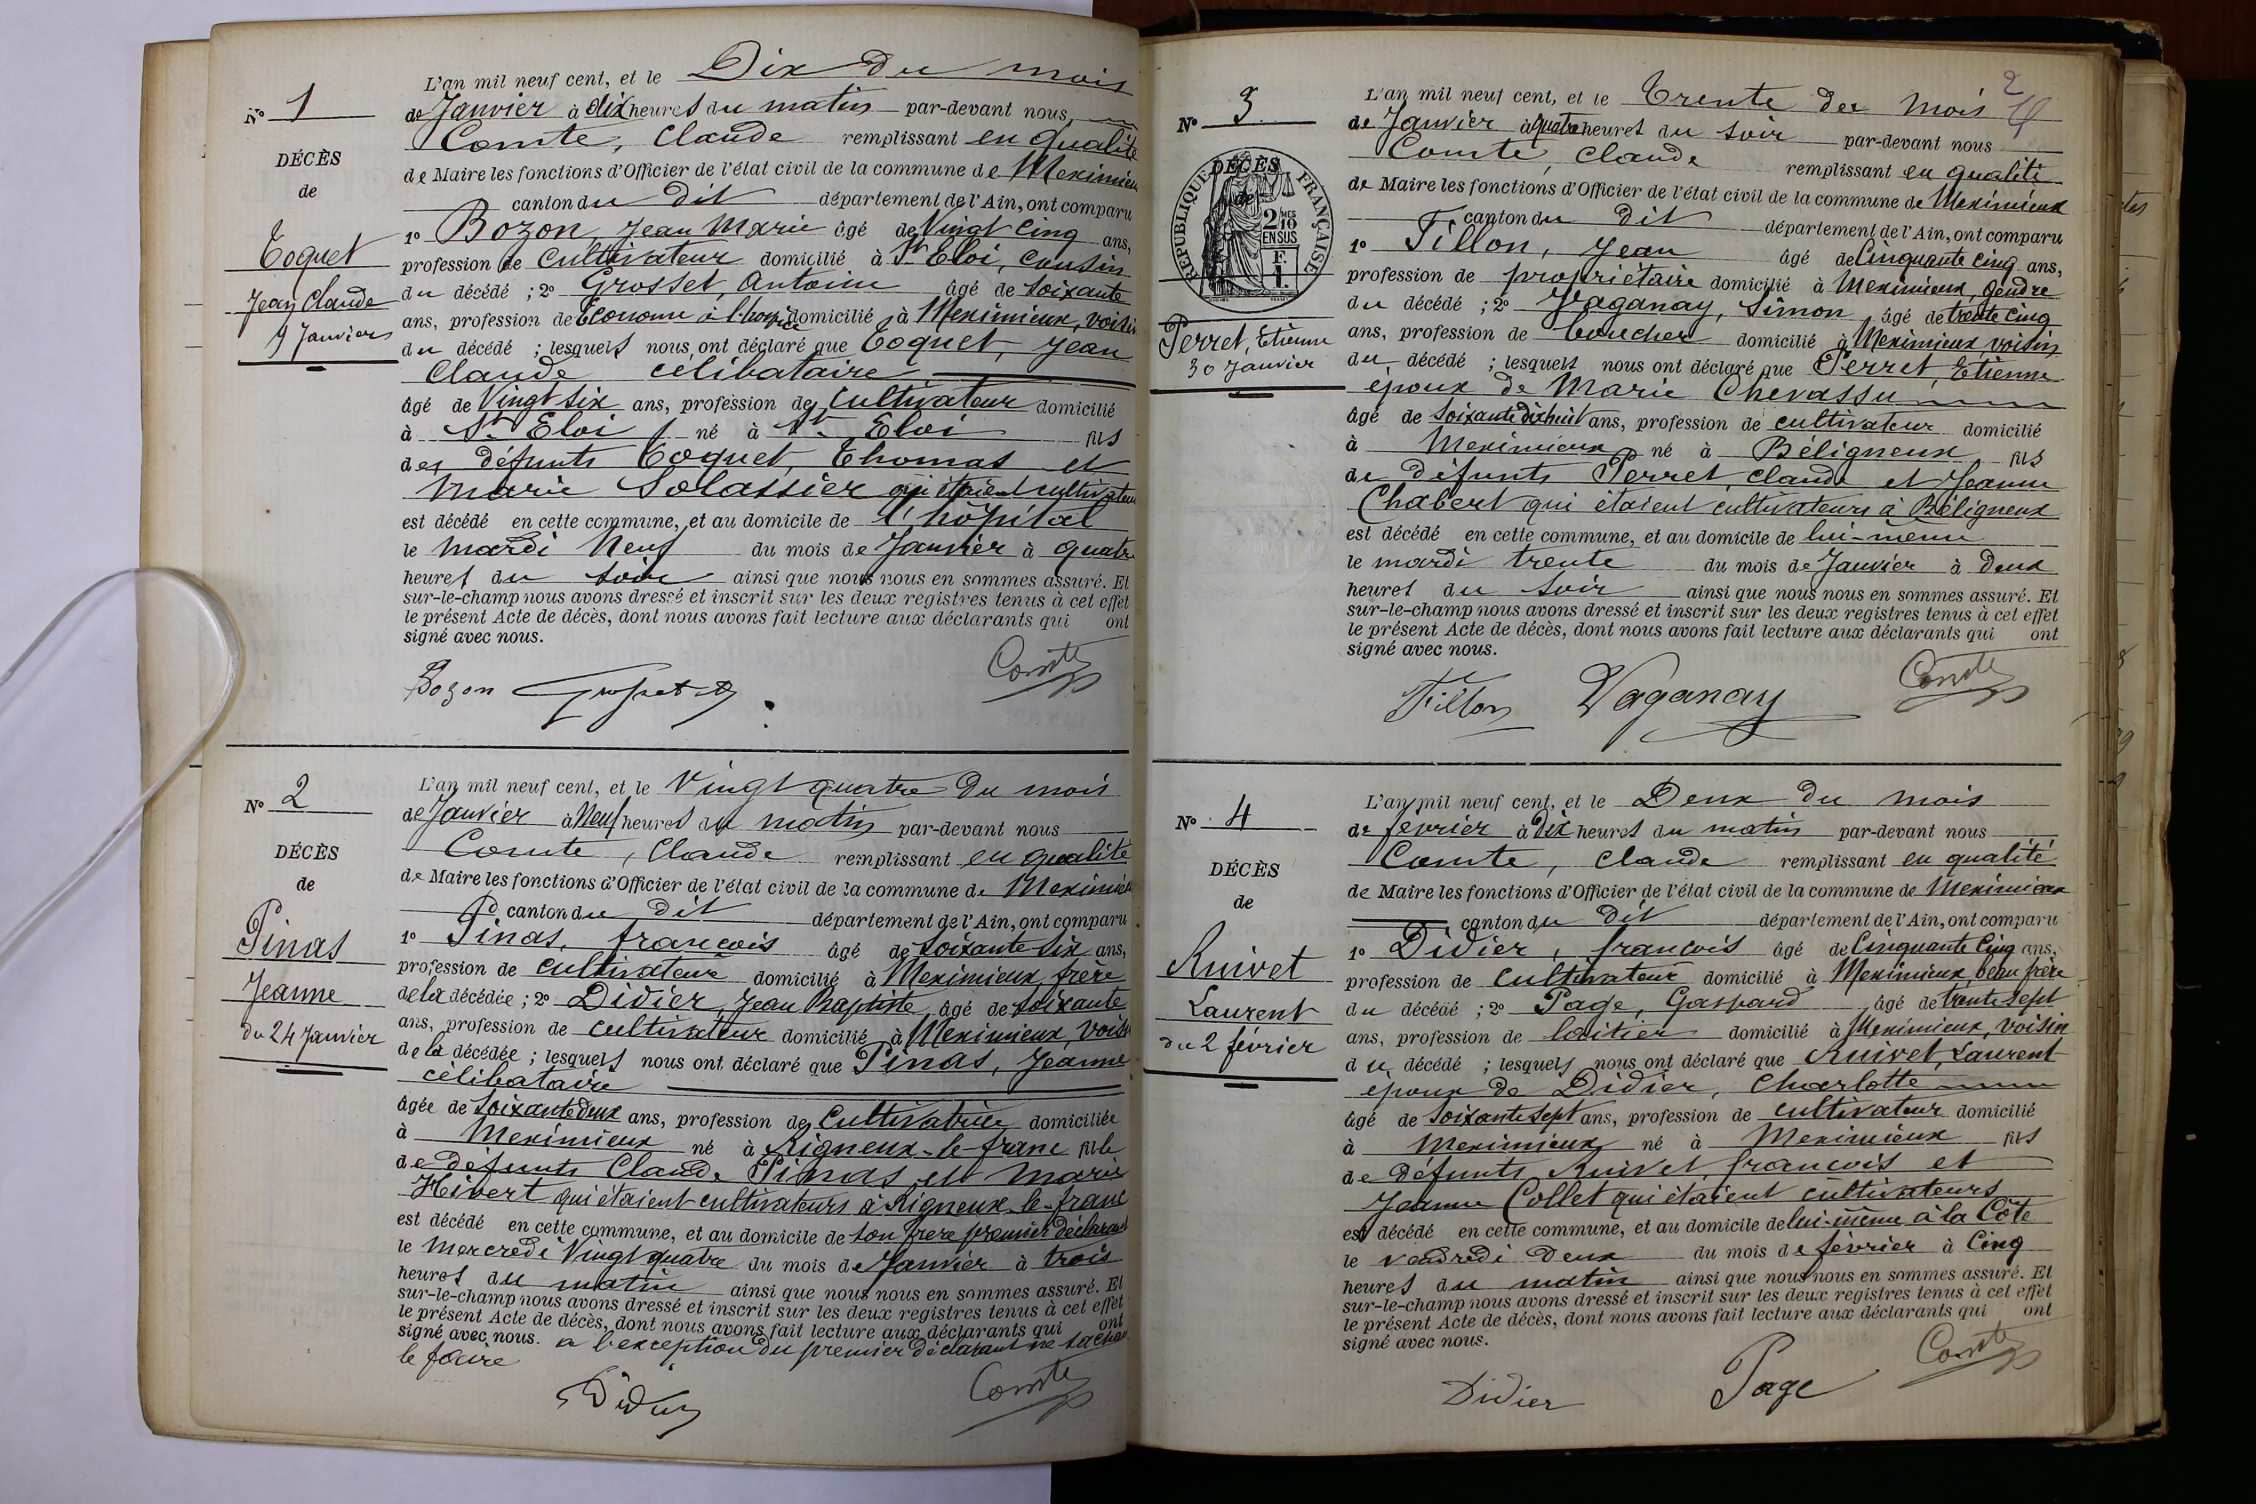 N° 1
DÉCÈS
de
Coquet
Jean Claude
9 Janvier
L'an mil neuf cent, et le Dix du mois
de Janvier à dix heures du matin par-devant nous,
Comte, Claude remplissant en qualité
de Maire les fonctions d'Officier de l'état civil de la commune de Meximieux
canton du dit département de l'Ain, ont comparu
1° Bozon Jean Marie âgé de Vingt Cinq ans,
profession de Cultivateur domicilié à St Eloi, cousin
du décédé ; 2° Grosset, Antoine âgé de soixante
ans, profession de Econome à l'hospice domicilié à Meximieux, voisin
du décédé ; lesquels nous ont déclaré que Coquet, Jean
Claude célibataire
âgé de Vingt six ans, profession de Cultivateur domicilié
à St Eloi né à St Eloi fils
des défunts Coquet, Thomas et
Marie Solassier qui étaient cultivateurs
est décédé en cette commune, et au domicile de l'hôpital
le mardi Neuf du mois de Janvier à quatre
heures du soir ainsi que nous nous en sommes assuré. Et
sur-le-champ nous avons dressé et inscrit sur les deux registres tenus à cet effet
le présent Acte de décès, dont nous avons fait lecture aux déclarants qui ont
signé avec nous.
Bozon Grosset Comte
N° 2
DÉCÈS
de
Pinas
Jeanne
du 24 Janvier
L'an mil neuf cent, et le Vingt quatre du mois
de Janvier à Neuf heures du matin par-devant nous
Comte, Claude remplissant en qualité
de Maire les fonctions d'Officier de l'état civil de la commune de Meximieux
canton du dit département de l'Ain, ont comparu
1° Pinas, francois âgé de soixante six ans,
profession de cultivateur domicilié à Meximieux frère
de la décédée ; 2° Didier, Jean Baptiste âgé de soixante
ans, profession de cultivateur domicilié à Meximieux, voisin
de la décédée ; lesquels nous ont déclaré que Pinas, Jeanne
célibataire
âgée de soixante deux ans, profession de Cultivatrice domiciliée
à Meximieux né à Rigneux-le-franc fille
de défunts Claude Pinas et Marie
Hivert qui étaient cultivateurs à Rigneux-le-franc
est décédé en cette commune, et au domicile de son frere premier déclarant
le Mercredi Vingt quatre du mois de Janvier à trois
heures du matin ainsi que nous nous en sommes assuré. Et
sur-le-champ nous avons dressé et inscrit sur les deux registres tenus à cet effet
le présent Acte de décès, dont nous avons fait lecture aux déclarants qui ont
signé avec nous. a l'exception du premier déclarant ne sachant
le faire
Didier Comte
2
N° 3
DÉCÈS
de
RÉPUBLIQUE FRANÇAISE
2 MES
10
EN SUS
F.
1.
Perret, Etienne
30 Janvier
L'an mil neuf cent, et le Trente du mois
de Janvier à quatre heures du soir par-devant nous
Comte, Claude remplissant en qualité
de Maire les fonctions d'Officier de l'état civil de la commune de Meximieux
canton du dit département de l'Ain, ont comparu
1° Fillon, Jean âgé de Cinquante cinq ans,
profession de propriétaire domicilié à Meximieux, gendre
du décédé ; 2° Vaganay, Simon âgé de trente cinq
ans, profession de boucher domicilié à Meximieux voisin
du décédé ; lesquels nous ont déclaré que Perret, Etienne
époux de Marie Chevassu
âgé de soixante dix huit ans, profession de cultivateur domicilié
à Meximieux né à Béligneux fils
de défunts Perret, Claude et Jeanne
Chabert qui étaient cultivateurs à Béligneux
est décédé en cette commune, et au domicile de lui-même
le mardi trente du mois de Janvier à Deux
heures du soir ainsi que nous nous en sommes assuré. Et
sur-le-champ nous avons dressé et inscrit sur les deux registres tenus à cet effet
le présent Acte de décès, dont nous avons fait lecture aux déclarants qui ont
signé avec nous.
Fillon Vaganay Comte
N° 4
DÉCÈS
de
Ruivet
Laurent
du 2 février
L'an mil neuf cent, et le Deux du mois
de février à Dix heures du matin par-devant nous
Comte, Claude remplissant en qualité
de Maire les fonctions d'Officier de l'état civil de la commune de Meximieux
canton du dit département de l'Ain, ont comparu
1° Didier, francois âgé de Cinquante Cinq ans,
profession de Cultivateur domicilié à Meximieux beau frère
du décédé ; 2° Page, Gaspard âgé de trente sept
ans, profession de laitier domicilié à Meximieux, voisin
du décédé ; lesquels nous ont déclaré que Ruivet, Laurent
époux de Didier, Charlotte
âgé de soixante sept ans, profession de cultivateur domicilié
à Meximieux né à Meximieux fils
de défunts Ruivet, francois et
Jeanne Collet qui étaient cultivateurs
est décédé en cette commune, et au domicile de lui-même à la Côte
le vendredi Deux du mois de février à Cinq
heures du matin ainsi que nous nous en sommes assuré. Et
sur-le-champ nous avons dressé et inscrit sur les deux registres tenus à cet effet
le présent Acte de décès, dont nous avons fait lecture aux déclarants qui ont
signé avec nous.
Didier Page Comte